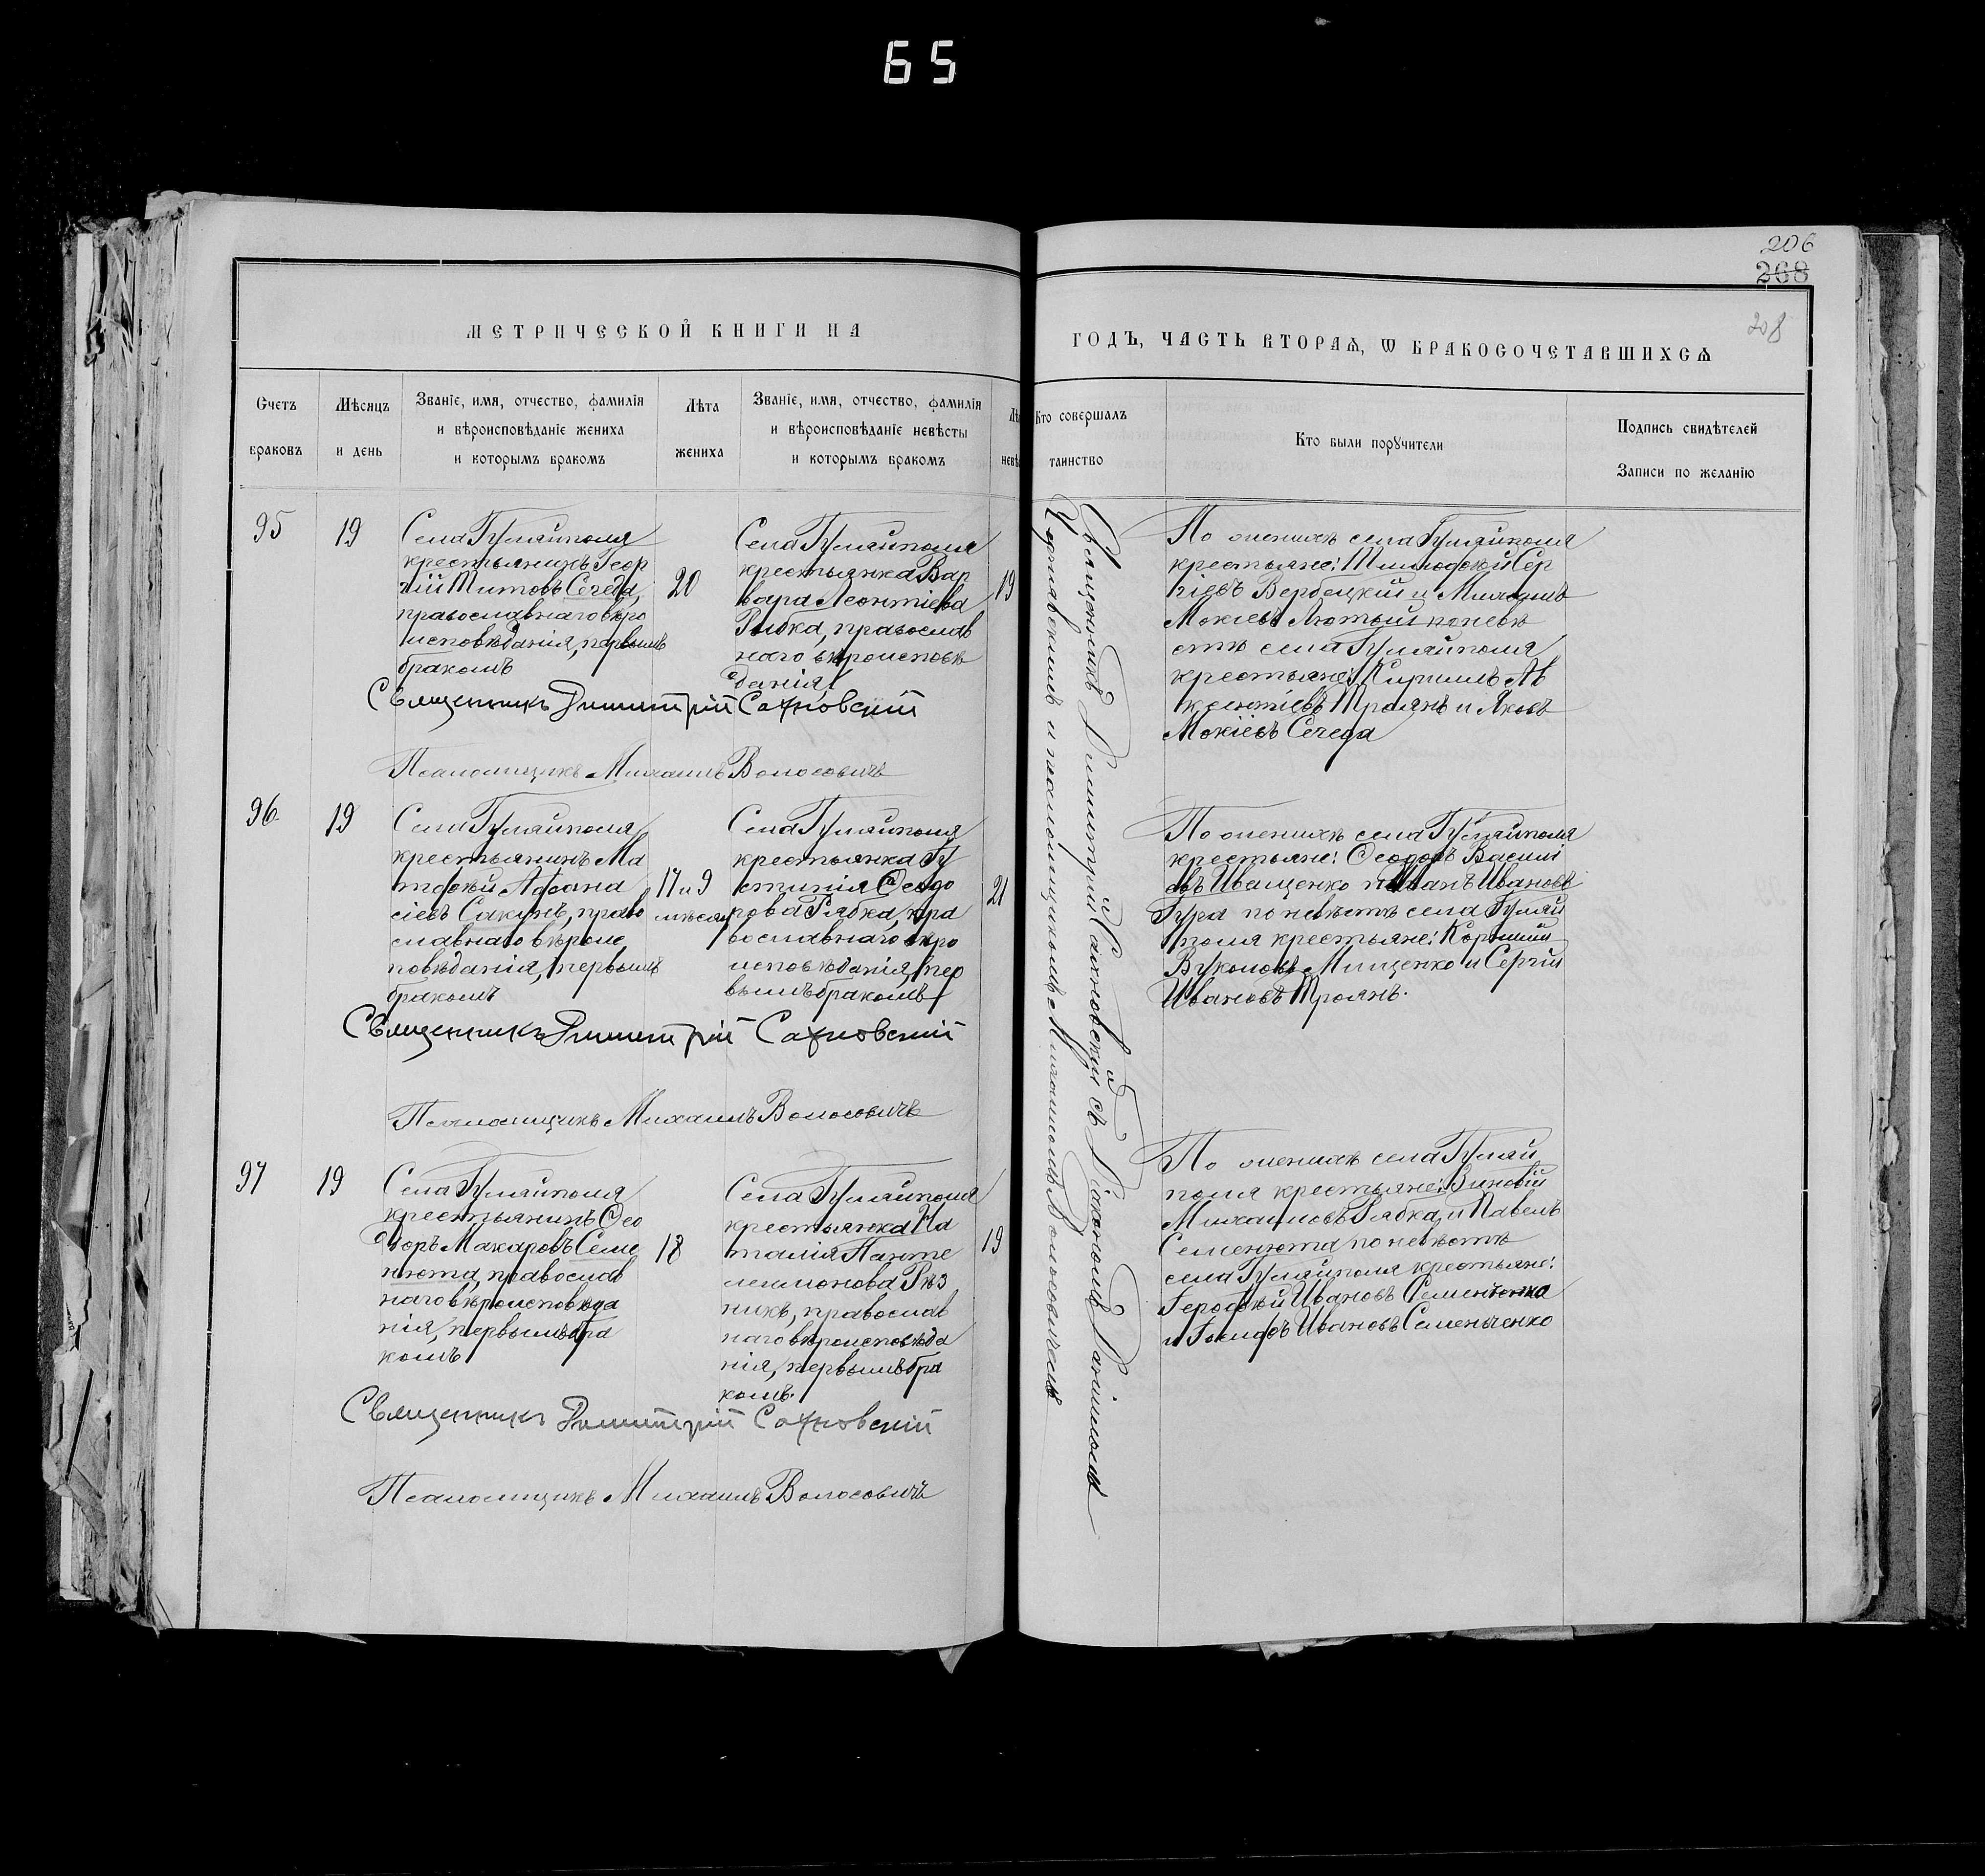 65
206
268
208
МЕТРИЧЕСКОЙ КНИГИ НА
ГОДЪ, ЧАСТЬ ВТОРАѦ, Ѡ БРАКОСОЧЕТАВШИХСѦ
Счетъ браковъ
Мѣсяцъ и день
Званіе, имя, отчество, фамилія
и вѣроисповѣданіе жениха
и которымъ бракомъ
Лѣта жениха
Званіе, имя, отчество, фамилія
и вѣроисповѣданіе невѣсты
и которымъ бракомъ
Лѣ
невѣ
Кто совершалъ
таинство
Кто были поручители
Подпись свидѣтелей
Записи по желанію
95
19
Села Гуляйполя
крестьянинъ Геор
гій Титовъ Середа,
православнаго вѣро
исповѣданія, первымъ
бракомъ
20
Села Гуляйполя
крестьянка Вар
вара Леонтіева
Рябка, православ
наго вѣроисповѣ
данія
19
Священникъ Димитрій Сахновскій
Псаломщикъ Михаилъ Волосовичъ
По женихѣ села Гуляйполя
крестьяне: Тимофей Сер
гіевъ Вербецкій и Михаилъ
Мокіевъ Лютый по невѣ
стѣ села Гуляйполя
крестьяне: Кириллъ
Троянъ и Яковъ
Мокіевъ Середа
96
19
Села Гуляйполя
крестьянинъ Ма
тѳей Аѳана
сіевъ Сакунъ, право
славнаго вѣроис
повѣданія, первымъ
бракомъ
17 и 9
мѣсяц
Села Гуляйполя
крестьянка Іу
стинія Ѳеодо
рова Рябка, пра
вославнаго вѣро
исповѣданія, пер
вымъ бракомъ
21
Священникъ Димитрій Сахновскій
Псаломщикъ Михаилъ Волосовичъ
По женихѣ села Гуляйполя
крестьяне: Ѳеодоръ Василі
евъ Иващенко и Иванъ Ивановъ
Гура по невѣстѣ села Гуляй
поля крестьяне: Корнилій
Вуколовъ Мищенко и Сергій
Ивановъ Троянъ.
97
19
Села Гуляйполя
крестьянинъ Ѳео
доръ Макаровъ Семе
нюта, православ
наго вѣроисповѣда
нія, первымъ бра
комъ
18
Села Гуляйполя
крестьянка На
талія Панте
леимонова Рѣз
никъ, православ
наго вѣроисповѣда
нія, первымъ бра
комъ.
19
Священникъ Димитрій Сахновскій
Псаломщикъ Михаилъ Волосовичъ
По женихѣ села Гуляй
поля крестьяне: Зиновій
Михаиловъ Рябка и Павелъ
Семенюта по невѣстѣ
села Гуляйполя крестьяне:
Героѳей Ивановъ
и Іосифъ Ивановъ Семенченко
Священникъ Димитрій Сахновскій съ Діакономъ
и псаломщикомъ Михаиломъ Волосовичемъ